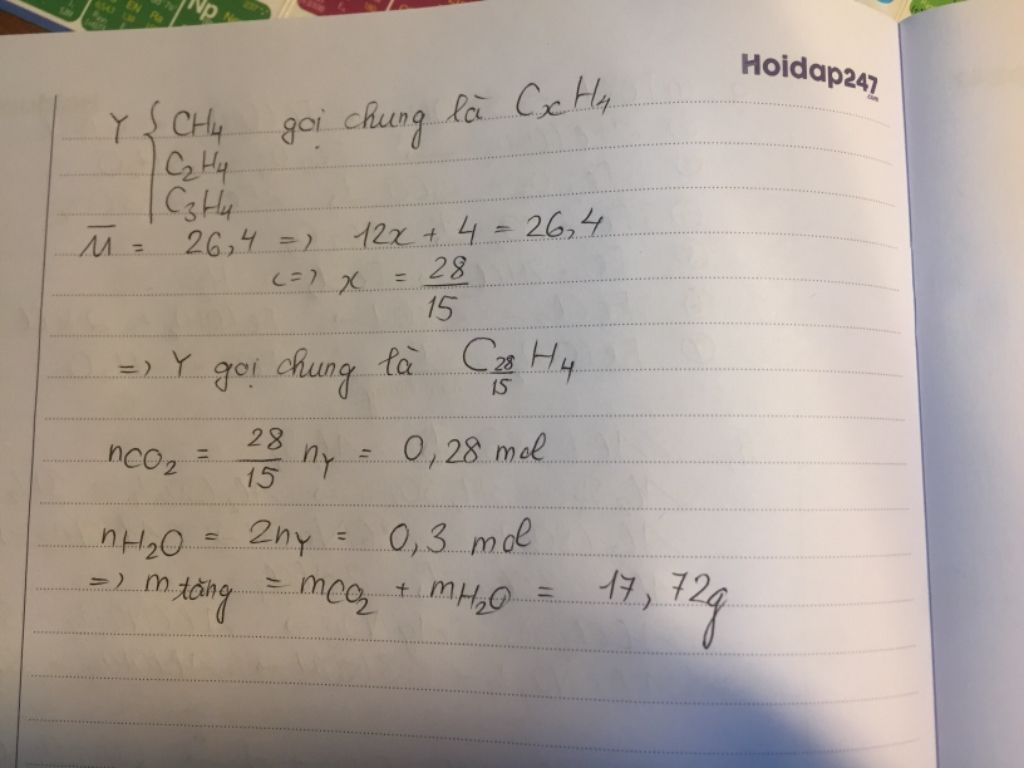 Hoidap247
.com
Y { CH4 gọi chung là CxH4
C2H4
C3H4
M̄ = 26,4 => 12x + 4 = 26,4
<=> x = 28/15
=> Y gọi chung là C28/15H4
nCO2 = 28/15 nY = 0,28 mol
nH2O = 2nY = 0,3 mol
=> m tăng = mCO2 + mH2O = 17,72g